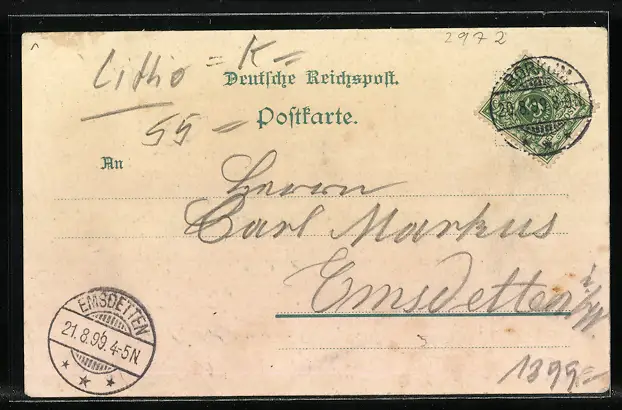 2972
Litho = K =
55 =
Deutsche Reichspost.
Postkarte.
BORKUM
20.8.99. 8-9N
5
An
Herrn
Carl Markus
Emsdetten
i/W.
EMSDETTEN
21.8.99. 4-5N.
1399.-